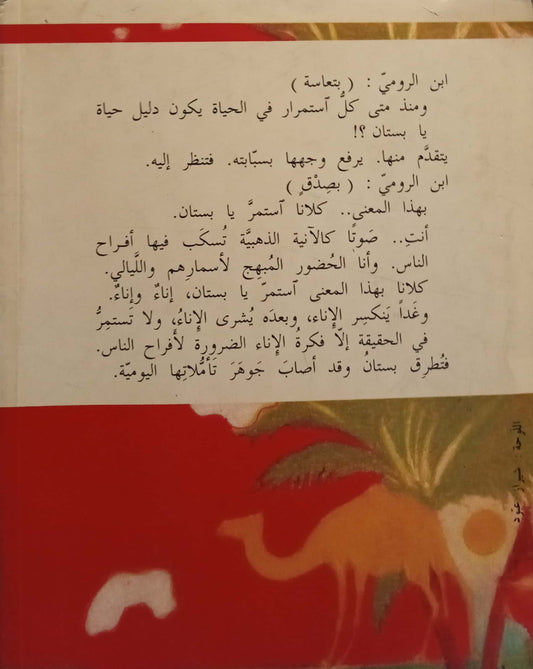 ابن الروميّ : ( بتعاسة )
ومنذ متى كلُّ ٱستمرار في الحياة يكون دليل حياة
يا بستان ؟!
يتقدَّم منها. يرفع وجهها بسبّابته. فتنظر إليه.
ابن الروميّ : ( بصِدْقٍ )
بهذا المعنى.. كلانا ٱستمرَّ يا بستان.
أنتِ.. صَوتًا كالآنية الذهبيَّة تُسكَب فيها أفراح
الناس. وأنا الحُضور المُبهِج لأسمارِهم واللَّيالي.
كلانا بهذا المعنى ٱستمرّ يا بستان، إناءٌ وإناءٌ.
وغَداً يَنكسِر الإِناء، وبعدَه يُشرى الإِناءُ، ولا تَستمِرُّ
في الحقيقة إلاّ فكرةُ الإناء الضرورة لأَفراح الناس.
فتُطرِق بستانُ وقد أصابَ جَوهَرَ تَأمُّلاتِها اليوميّة.
اللوحة : شيراز عبّود